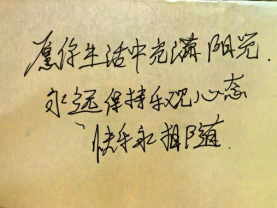 愿你生活中充满阳光.
永远保持乐观心态
快乐永相随.